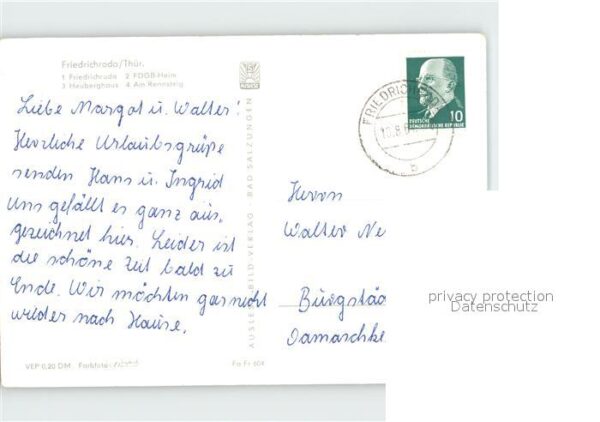 Friedrichroda/Thür.
1 Friedrichroda 2 FDGB-Heim
3 Heuberghaus 4 Am Rennsteig
Liebe Margot u. Walter!
Herzliche Urlaubsgrüße
senden Hans u. Ingrid
Uns gefällt es ganz aus,
gezeichnet hier. Leider ist
die schöne Zeit bald zu
Ende. Wir möchten gar nicht
wieder nach Hause.
VEP 0,20 DM
Fa Fr 604
BILD-VERLAG BAD SALZUNGEN
FRIEDRICHRO
10.8.6
b
10
DEUTSCHE
DEMOKRATISCHE REPUBLIK
Herrn
Walter Ne
Burgstäd
Damaschke
privacy protection
Datenschutz